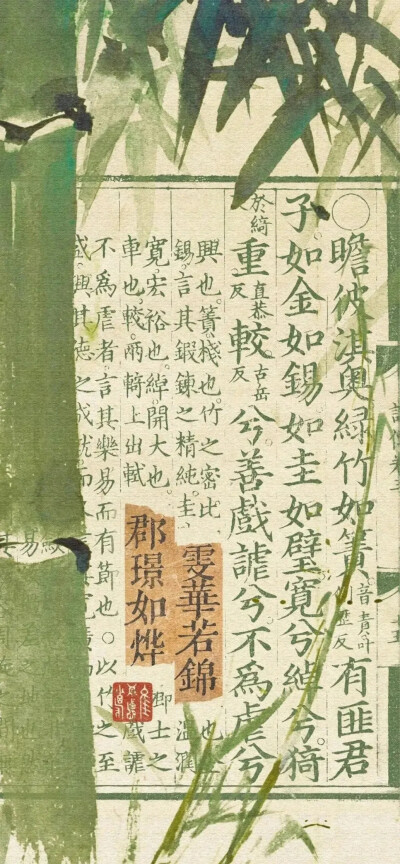 ○瞻彼淇奧綠竹如簀音責叶歷反有匪君
子如金如錫如圭如璧寬兮綽兮猗
於綺反重直恭反較古岳反兮善戲謔兮不為虐兮
興也簀棧也竹之密比
也金
錫言其鍛鍊之精純圭
溫潤
寬宏裕也綽開大也
即士之
車也較兩輢上出軾
戲謔
不為虐者言其樂易而有節也○以竹之至
盛興其德之成就而
雯華若錦
郡璟如烨